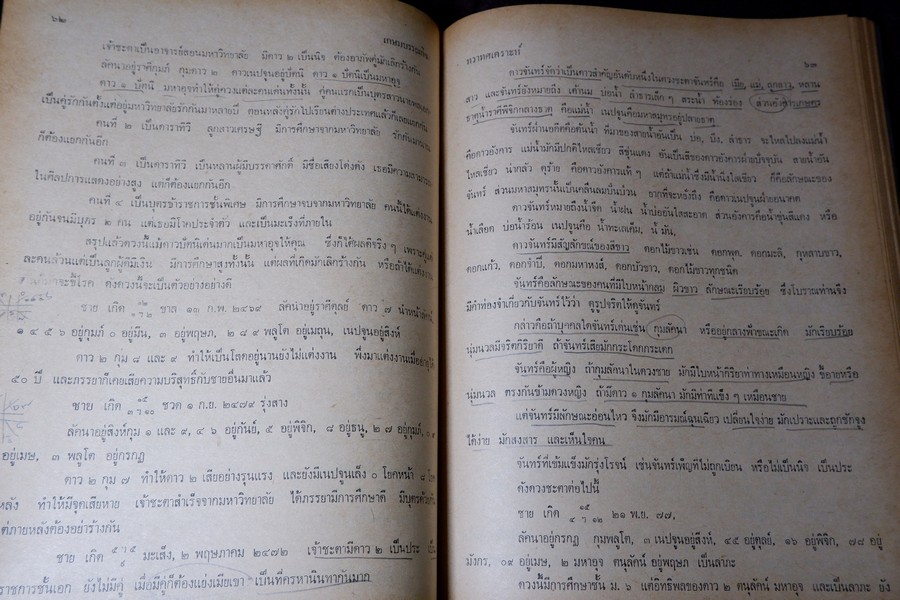 ๖๒
เกษมบรรณกิจ
เจ้าชะตาเป็นอาจารย์สอนมหาวิทยาลัย มีดาว ๒ เป็นนิจ ต้องอาภัพคู่มักเลิกร้างกัน
ลัคนาอยู่ราศีกุมภ์ กุมดาว ๒ ดาวเนปจูนอยู่ปัตนิ ดาว ๑ ปัตนิเป็นมหาอุจ
ดาว ๑ ปัตนิ มหาอุจทำให้คู่ดวงแต่ละคนเด่นทั้งนั้น คู่คนแรกเป็นบุตรสาวนายพล
เป็นคู่รักกันตั้งแต่อยู่มหาวิทยาลัยรักกันมาหลายปี ตอนหลังคู่รักไปเรียนต่างประเทศแล้วก็เลยแยกกัน
คนที่ ๒ เป็นดาราทีวี ลูกสาวเศรษฐี มีการศึกษาจากมหาวิทยาลัย รักกัน
ก็ต้องแยกกันอีก
คนที่ ๓ เป็นดาราทีวี เป็นหลานผู้มีบรรดาศักดิ์ มีชื่อเสียงโด่งดัง เธอมีความสามารถ
ในศิลปการแสดงอย่างสูง แต่ก็ต้องแยกกันอีก
คนที่ ๔ เป็นบุตรข้าราชการชั้นพิเศษ มีการศึกษาจบจากมหาวิทยาลัย คนนี้ได้แต่งงาน
อยู่กันจนมีบุตร ๒ คน แต่เธอมีโรคประจำตัว และเป็นมะเร็งที่ภายใน
สรุปแล้วดวงนี้แม้ดาวปัตนิเด่นมากเป็นมหาอุจให้คุณ ซึ่งก็ได้ผลดีจริง ๆ เพราะคู่แต่
ละคนล้วนแต่เป็นลูกผู้ดีมีเงิน มีการศึกษาสูงทั้งนั้น แต่ผลที่เกิดมักเลิกร้างกัน หรือถ้าได้แต่งงาน
มาจะขี้โรค ดังดวงนี้จะเป็นตัวอย่างอย่างดี
ชาย เกิด ขาล ๑๓ ก.พ. ๒๔๖๙ ลัคนาอยู่ราศีตุลย์ ดาว ๗ นำหน้าลัคน์
๑ ๔ ๕ ๖ อยู่กุมภ์ ๐ อยู่มีน, ๓ อยู่พฤษภ, ๒ ๘ ๙ พลูโต อยู่เมถุน, เนปจูนอยู่สิงห์
ดาว ๒ กุม ๘ และ ๙ ทำให้เป็นโสดอยู่นานยังไม่แต่งงาน พึ่งมาแต่งงานเมื่ออายุได้
๕๐ ปี และภรรยาก็เคยเสียความบริสุทธิ์กับชายอื่นมาแล้ว
ชาย เกิด ชวด ๑ ก.ย. ๒๔๗๙ รุ่งสาง
ลัคนาอยู่สิงห์กุม ๑ และ ๙, ๔ ๖ อยู่กันย์, ๕ อยู่พิจิก, ๘ อยู่ธนู, ๒ ๗ อยู่กุมภ์,
อยู่เมษ, ๓ พลูโต อยู่กรกฎ
ดาว ๒ กุม ๗ ทำให้ดาว ๒ เสียอย่างรุนแรง และยังมีเนปจูนเล็ง ๐ โยคหน้า ๘ โยค
หลัง ทำให้มีจุดเสียหาย เจ้าชะตาสำเร็จจากมหาวิทยาลัย ได้ภรรยามีการศึกษาดี มีบุตรด้วยกัน
แต่ภายหลังต้องอย่าร้างกัน
ชาย เกิด มะเส็ง, ๒ พฤษภาคม ๒๔๗๒ เจ้าชะตามีดาว ๒ เป็นประ
ราชการชั้นเอก ยังไม่มีคู่ เมื่อมีคู่ก็ต้องแย่งเมียเขา เป็นที่ครหานินทากันมาก
ทวาทศเคราะห์
๖๓
ดาวจันทร์จัดว่าเป็นดาวสำคัญอันดับหนึ่งในดวงชะตาจันทร์คือ เมีย, แม่, ลูกสาว, หลาน
สาว และจันทร์ยังหมายถึง เต้านม บ่อน้ำ ลำธารเล็ก ๆ สระน้ำ ท้องร่อง ส่วนเสาร์เกษตร
ธาตุน้ำราศีพิจิกกลางธาตุ คือแม่น้ำ เนปจูนคือมหาสมุทรอยู่ปลายธาตุ
จันทร์ผ่านอดีตคือต้นน้ำ ที่มาของสายน้ำอันเป็น บ่อ, บึง, ลำธาร จะไหลไปลงแม่น้ำ
คือดาวอังคาร แม่น้ำมักมีปกติไหลเชี่ยว สีขุ่นแดง อันเป็นสีของดาวอังคารฝ่ายปัจจุบัน สายน้ำอัน
ไหลเชี่ยว น่ากลัว ดุร้าย คือดาวอังคารแท้ ๆ แต่ถ้าแม่น้ำซึ่งมีน้ำนิ่งใสเขียว ก็คือลักษณะของ
จันทร์ ส่วนมหาสมุทรนั้นเป็นคลื่นลมปั่นป่วน ยากที่จะหยั่งถึง คือดาวเนปจูนฝ่ายอนาคต
ดาวจันทร์หมายถึงน้ำจืด น้ำฝน น้ำบ่ออันใสสะอาด ส่วนอังคารคือน้ำขุ่นสีแดง หรือ
น้ำเลือด บ่อน้ำร้อน เนปจูนคือ น้ำทะเลเค็ม, น้ำมัน,
ดาวจันทร์มีสัญลักษณ์ของสีขาว ดอกไม้ขาวเช่น ดอกพุด, ดอกมะลิ, กุหลาบขาว,
ดอกแก้ว, ดอกจำปี, ดอกมหาหงส์, ดอกบัวขาว, ดอกไม้ขาวทุกชนิด
จันทร์คือลักษณะของคนที่มีใบหน้ากลม ผิวขาว ลักษณะเรียบร้อย ซึ่งโบราณท่านจึง
มีคำท่องจำเกี่ยวกับจันทร์ไว้ว่า ดูรูปจริตให้ดูจันทร์
กล่าวคือถ้าบุคคลใดจันทร์เด่นเช่น กุมลัคนา หรืออยู่กลางฟ้าขณะเกิด มักเรียบร้อย
นุ่มนวลมีจริตกิริยาดี ถ้าจันทร์เสียมักกระโดกกระเดก
จันทร์คือผู้หญิง ถ้ากุมลัคนาในดวงชาย มักมีใบหน้ากิริยาท่าทางเหมือนหญิง ขี้อายหรือ
นุ่มนวล ตรงกันข้ามดวงหญิง ถ้ามีดาว ๑ กุมลัคนา มักมีท่าทีแข็ง ๆ เหมือนชาย
แต่จันทร์มีลักษณะอ่อนไหว จึงมักมีอารมณ์ฉุนเฉียว เปลี่ยนใจง่าย มักเปราะและถูกชักจูง
ได้ง่าย มักสงสาร และเห็นใจคน
จันทร์ที่เข้มแข็งมักรุ่งโรจน์ เช่นจันทร์เพ็ญที่ไม่ถูกเบียน หรือไม่เป็นนิจ เป็นประ
ดังดวงชะตาต่อไปนี้
ชาย เกิด ๒๑ พ.ย. ๗๗,
ลัคนาอยู่กรกฎ กุมพลูโต, ๓ เนปจูนอยู่สิงห์, ๔๕ อยู่ตุลย์, ๑๖ อยู่พิจิก, ๗๘ อยู่
มังกร, ๐๙ อยู่เมษ, ๒ มหาอุจ คนุลัคน์ อยู่พฤษภ เป็นลาภะ
ดวงนี้มีการศึกษาชั้น ม. ๖ แต่อิทธิพลของดาว ๒ คนุลัคน์ มหาอุจ และเป็นลาภะ ยัง